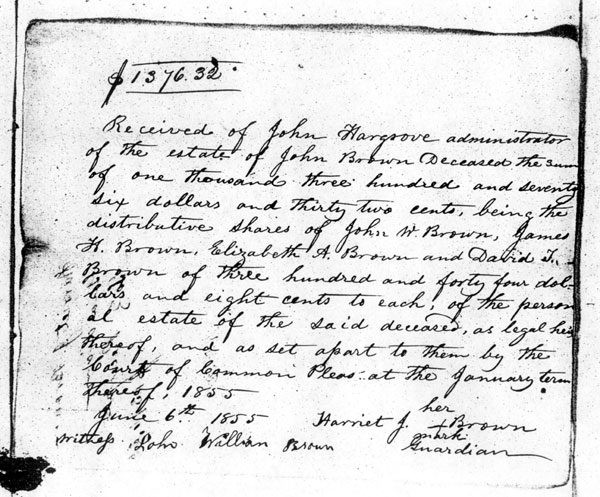 $1376.32
Received of John Hargrove administrator
of the estate of John Brown Deceased the sum
of one thousand three hundred and seventy
six dollars and thirty two cents, being the
distributive shares of John W. Brown, James
H. Brown, Elizabeth A. Brown and David T.
Brown of three hundred and forty four dol-
lars and eight cents to each, of the person
al estate of the said deceased, as legal heirs
thereof, and as set apart to them by the
Court of Common Pleas at the January term
thereof, 1855
June 6th 1855 Harriet J. her + mark Brown
Witness John William Brown Guardian